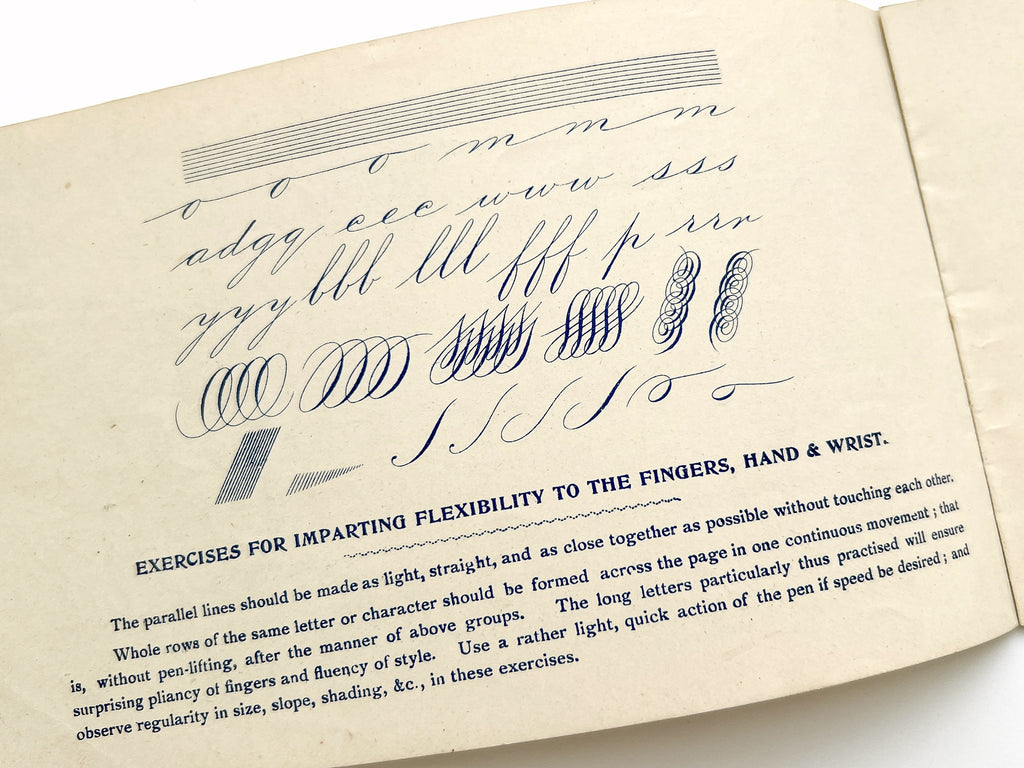 o o o m m m
adgq ccc www sss
yyy bbb lll fff p rrr
EXERCISES FOR IMPARTING FLEXIBILITY TO THE FINGERS, HAND & WRIST.
The parallel lines should be made as light, straight, and as close together as possible without touching each other.
Whole rows of the same letter or character should be formed across the page in one continuous movement; that
is, without pen-lifting, after the manner of above groups. The long letters particularly thus practised will ensure
surprising pliancy of fingers and fluency of style. Use a rather light, quick action of the pen if speed be desired; and
observe regularity in size, slope, shading, &c., in these exercises.